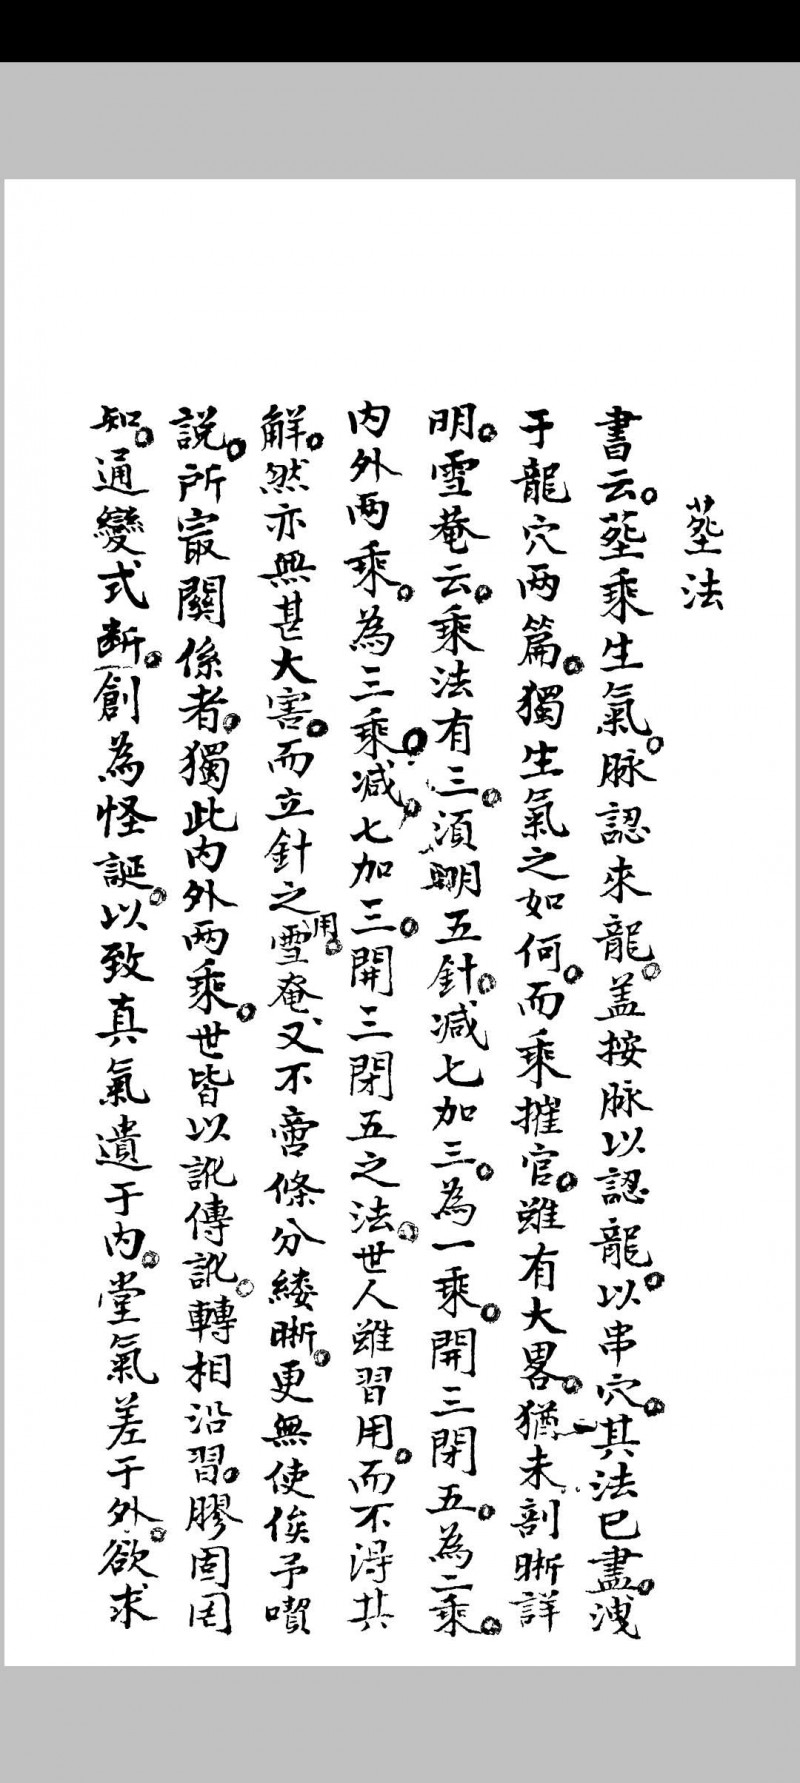 塟法
書云。塟乘生氣。脉認來龍。盖按脉以認龍。以串穴。其法已盡。洩
于龍穴两篇。獨生氣之如何。而乘摧官。雖有大畧。猶未剖晰詳
明。雪菴云。乘法有三。湏明五針。减七加三。為一乘。開三閉五。為二乘。
内外两乘。為三乘。减七加三。開三閉五之法。世人雖習用。而不淂其
解。然亦無甚大害。而立針之用。雪菴又不啻條分縷晰。更無使俟予喫
説。所㝡關係者。獨此内外两乘。世皆以訛傳訛。轉相沿習。膠固罔
知。通變式断。創為怪誕。以致真氣遺于内。堂氣差于外。欲求